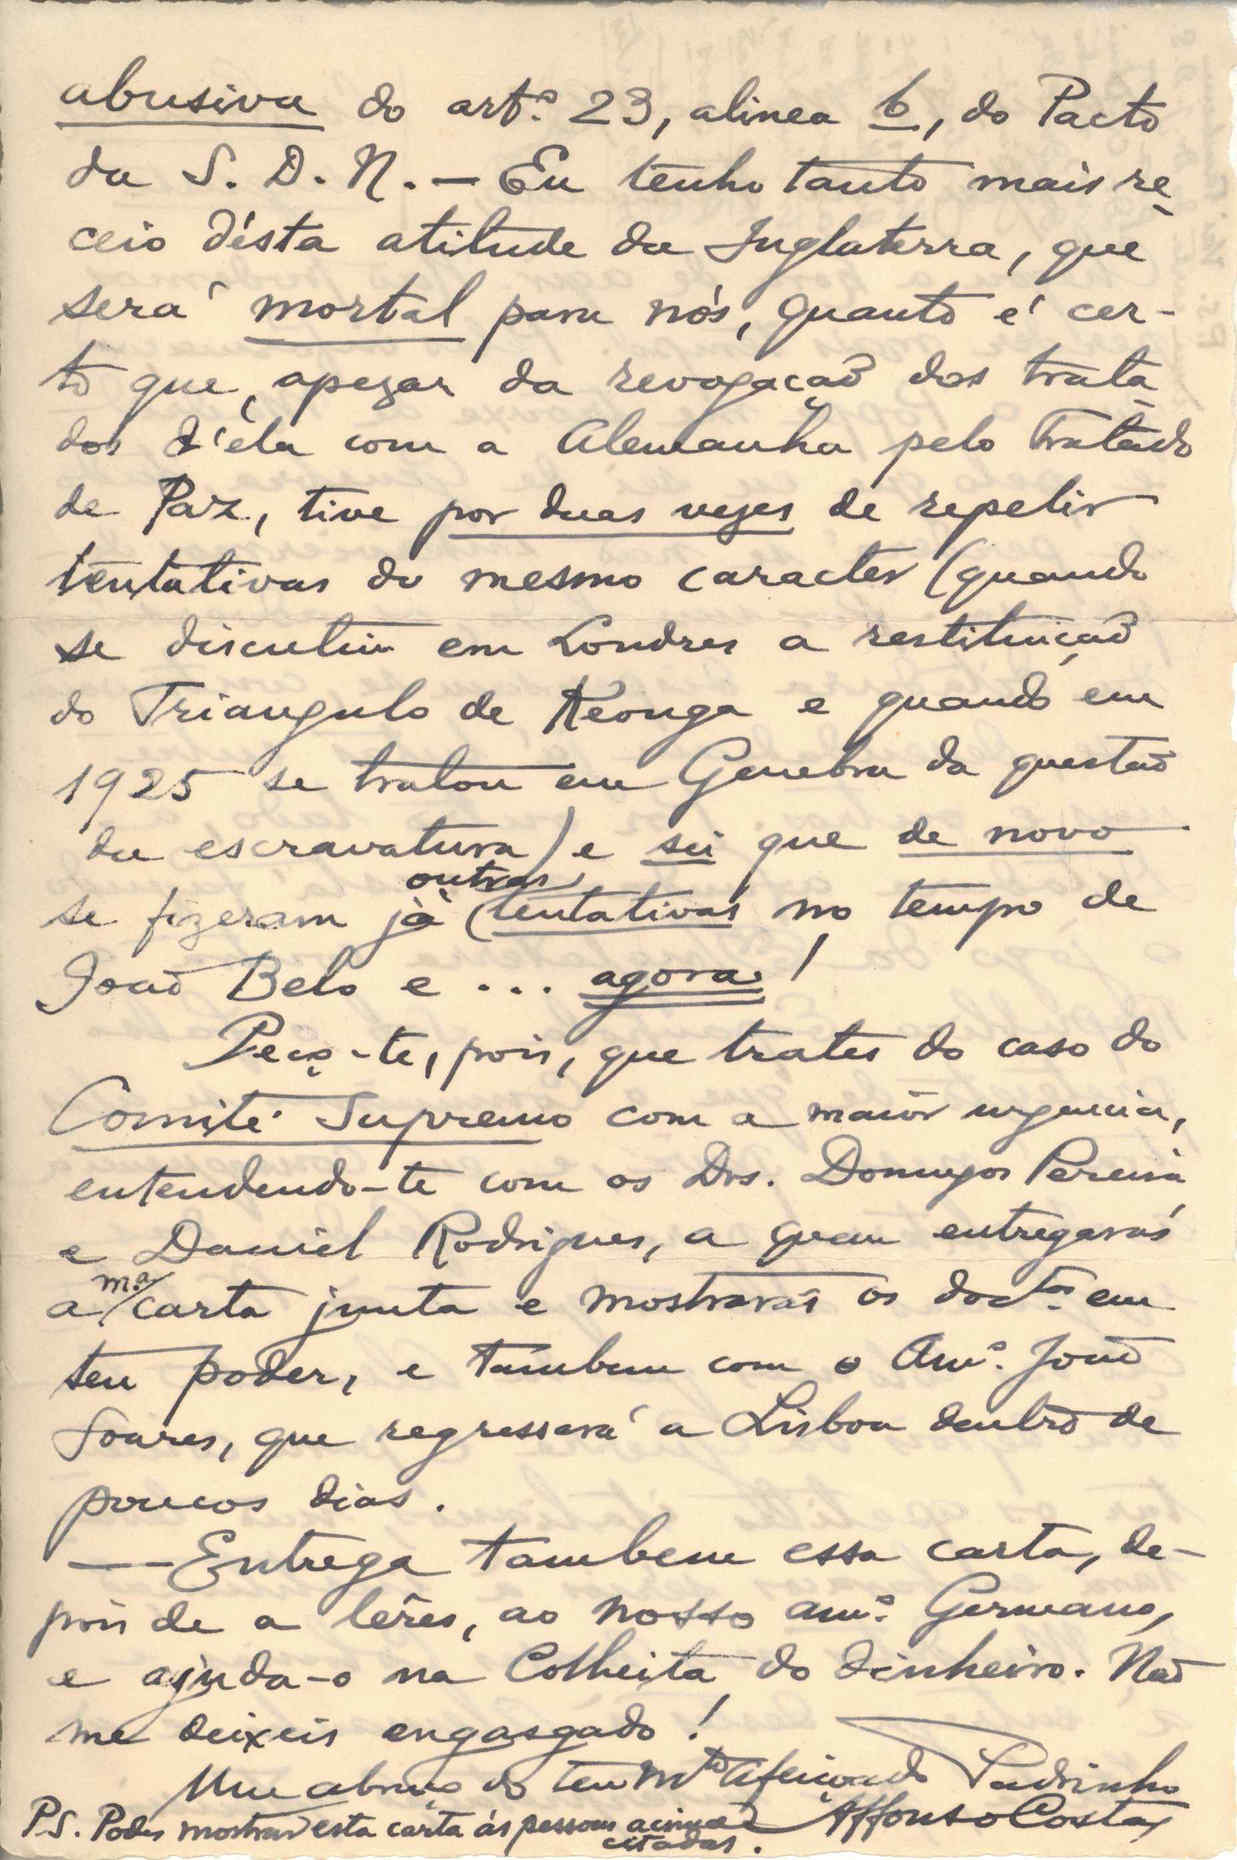 abusiva do artº. 23, alinea b, do Pacto
da S. D. N. — Eu tenho tanto mais re-
ceio désta atitude da Inglaterra, que
será mortal para nós, quanto é cer-
to que, apezar da revogação dos trata-
dos d'éla com a Alemanha pelo Tratado
de Paz, tive por duas vezes de repelir
tentativas do mesmo caracter (quando
se discutiu em Londres a restituição
do Triangulo de Keonga e quando em
1925 se tratou em Genebra da questão
da escravatura) e sei que de novo
se fizeram já outras tentativas no tempo de
João Belo e ... agora!
Peço-te, pois, que trates do caso do
Comité Supremo com a maior urgencia,
entendendo-te com os Drs. Domingos Pereira
e Daniel Rodrigues, a quem entregarás
a mª carta junta e mostrarás os doctos. em
teu poder, e tambem com o Amº. João
Soares, que regressará a Lisboa dentro de
poucos dias.
— Entrega tambem essa carta, de-
pois de a lêres, ao nosso amº. Germano,
e ajuda-o na Colheita do dinheiro. Não
me deixeis engasgado!
Um abraço do teu mto afeiçoado Padrinho
Affonso Costa
P.S. Podes mostrar esta carta ás pessoas acima
citadas.